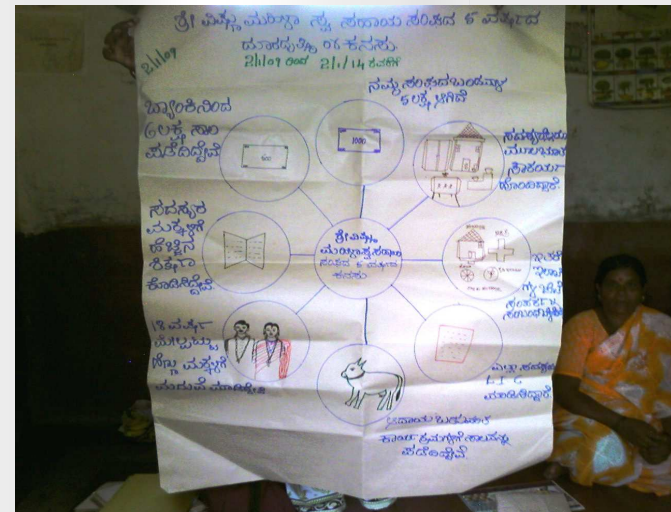 ಶ್ರೀ ವಿಷ್ಣು ಮಹಿಳಾ ಸ್ವ ಸಹಾಯ ಸಂಘದ 5 ವರ್ಷದ
ದೂರದೃಷ್ಟಿ ಕನಸು
2/1/09 ರಿಂದ 2/1/14
2/1/09
ನಮ್ಮ ಸಂಘದ ಬಂಡವಾಳ
5 ಲಕ್ಷ ಆಗಿದೆ
ಬ್ಯಾಂಕಿನಿಂದ
6 ಲಕ್ಷ ಸಾಲ
ಪಡೆದಿದ್ದೇವೆ
500
1000
ಮೂಲಭೂತ
ಸೌಕರ್ಯ
ಹೊಂದಿದ್ದಾರೆ.
ಸದಸ್ಯರ
ಮಕ್ಕಳಿಗೆ
ಹೆಚ್ಚಿನ
ಶಿಕ್ಷಣ
ಕೊಡಿಸಿದ್ದೇವೆ.
ಶ್ರೀ ವಿಷ್ಣು
ಮಹಿಳಾ ಸ್ವ ಸಹಾಯ
ಸಂಘದ 5 ವರ್ಷದ
ಕನಸು
18 ವರ್ಷ
ಮೇಲ್ಪಟ್ಟು
ಹೆಣ್ಣು ಮಕ್ಕಳಿಗೆ
ಮದುವೆ
ಎಲ್ಲಾ ಸದಸ್ಯರು
L I C
ಮಾಡಿಸಿದ್ದಾರೆ.
ಆದಾಯ
ಕಾರ್ಯಕ್ರಮಗಳಿಗೆ ಸಾಲವನ್ನು
ಪಡೆದಿದ್ದೇವೆ.